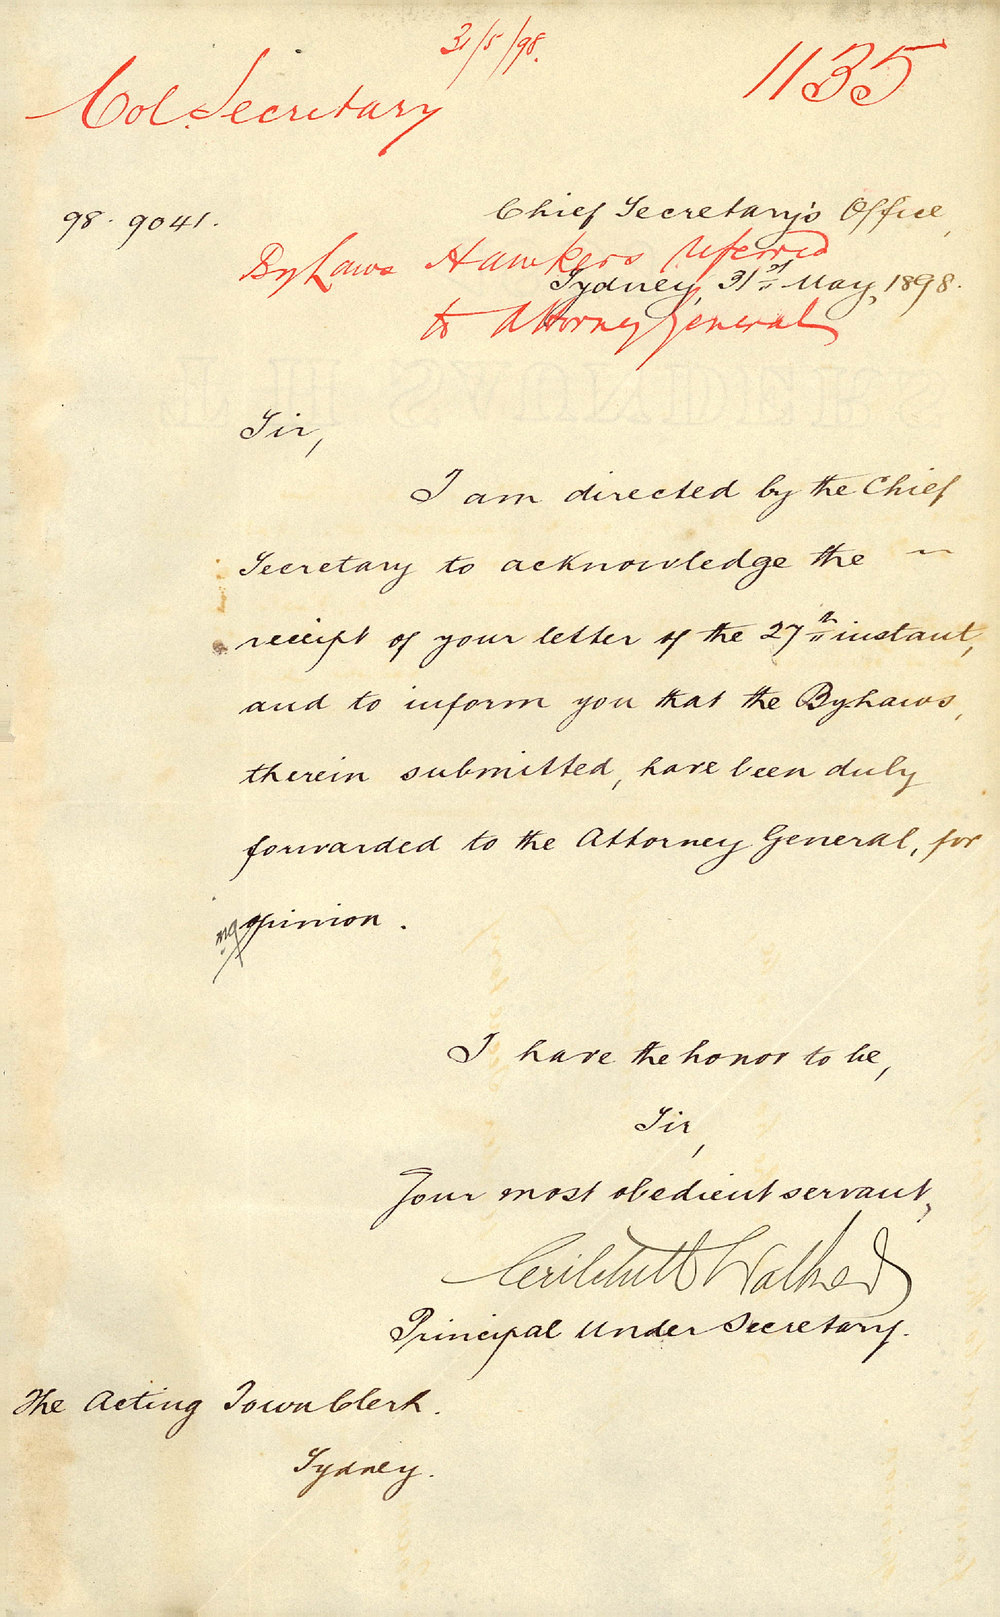 31/5/98.
1135
Col. Secretary
98. 9041.
Chief Secretary's Office,
By Laws Hawkers referred
Sydney, 31st May, 1898.
to Attorney General
Sir,
I am directed by the Chief
Secretary to acknowledge the
receipt of your letter of the 27th instant,
and to inform you that the By-Laws,
therein submitted, have been duly
forwarded to the Attorney General, for
opinion.
I have the honor to be,
Sir,
Your most obedient servant,
Critchett Walker
Principal Under Secretary.
The Acting Town Clerk.
Sydney.